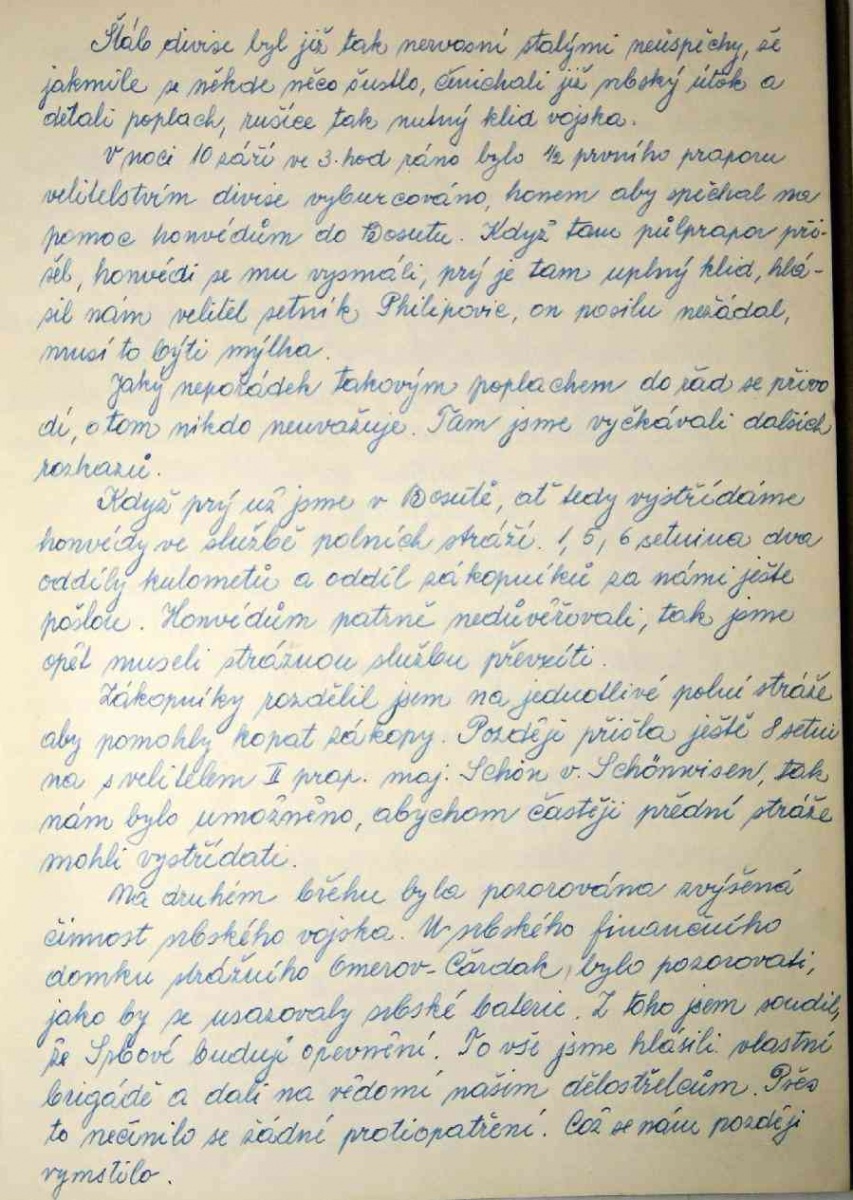 Štáb divise byl již tak nervosní stalými neúspěchy, že
jakmile se někde něco šustlo, čmichali již srbský útok a
dělali poplach, rušíce tak nutný klid vojska.
V noci 10 září ve 3. hod ráno bylo ½ prvního praporu
velitelstvím divise vyburcováno, honem aby spěchal na
pomoc honvédům do Bosutu. Když tam půlprapor při-
šel, honvédi se mu vysmáli, prý je tam uplný klid, hlá-
sil nám velitel setník Philipovic, on posilu nežádal,
musí to býti mýlka.
Jaký nepořádek takovým poplachem do řad se přivo
dí, o tom nikdo neuvažuje. Tam jsme vyčkávali dalších
rozkazů.
Když prý už jsme v Bosutě, ať tedy vystřídáme
honvédy ve službě polních stráží. 1, 5, 6 setnina dva
oddíly kulometů a oddíl zákopníků za námi ješte
pošlou. Honvédům patrně nedůvěřovali, tak jsme
opět museli strážnou službu převzíti.
Zákopníky rozdělil jsem na jednotlivé polní stráže
aby pomohly kopat zákopy. Později přišla ještě 8 setni
na s velitelem II prap. maj. Schön v. Schönwisen, tak
nám bylo umožněno, abychom častěji přední stráže
mohli vystřídati.
Na druhém břehu byla pozorována zvýšená
činnost srbského vojska. U srbského finančního
domku strážního Omerov-Čardak, bylo pozorovati,
jako by se usazovaly srbské baterie. Z toho jsem soudil,
že Srbové budují opevnění. To vše jsme hlásili vlastní
brigádě a dali na vědomí našim dělostřelcům. Přes
to nečinilo se žádní protiopatření. Což se nám později
vymstilo.